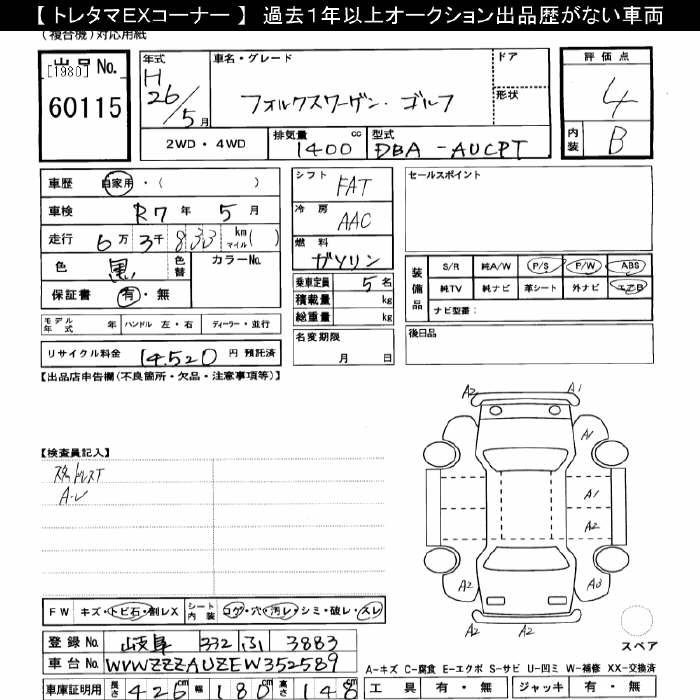 【 トレタマEXコーナー 】 過去1年以上オークション出品歴がない車両
(複合機)対応用紙
出品 No.
[1980]
60115
年式
H
26/5月
車名・グレード
フォルクスワーゲン・ゴルフ
ドア
形状
評価点
4
内装
B
2WD・4WD
排気量
1400 cc
型式
DBA-AUCPT
車歴 自家用・( )
車検 R7 年 5 月
走行 6万 3千 833 km マイル( )
色 黒 色替 カラーNo.
保証書 有・無
モデル年式 年 ハンドル 左・右 ディーラー・並行
リサイクル料金 14,520 円 預託済
シフト FAT
冷房 AAC
燃料 ガソリン
乗車定員 5 名
積載量 kg
総重量 kg
名変期限
月 日
セールスポイント
装備品
S/R 純A/W P/S P/W ABS
純TV 純ナビ 革シート 外ナビ エアB
ナビ型番:
後日品
【出品店申告欄(不良箇所・欠品・注意事項等)】
【検査員記入】
A2 A1
A1
A1
A2
A2 A3
A2 A2
スペア
FW キズ・トビ石・割レX シート内装 コゲ・穴・汚レ・シミ・破レ・スレ
登録 No. 岐阜 332 ふ 3883
車台 No. WVWZZZAUZEW352589
車庫証明用 長さ 426 cm 幅 180 cm 高さ 148 cm
A-キズ C-腐食 E-エクボ S-サビ U-凹ミ W-補修 XX-交換済
工具 有・無 ジャッキ 有・無